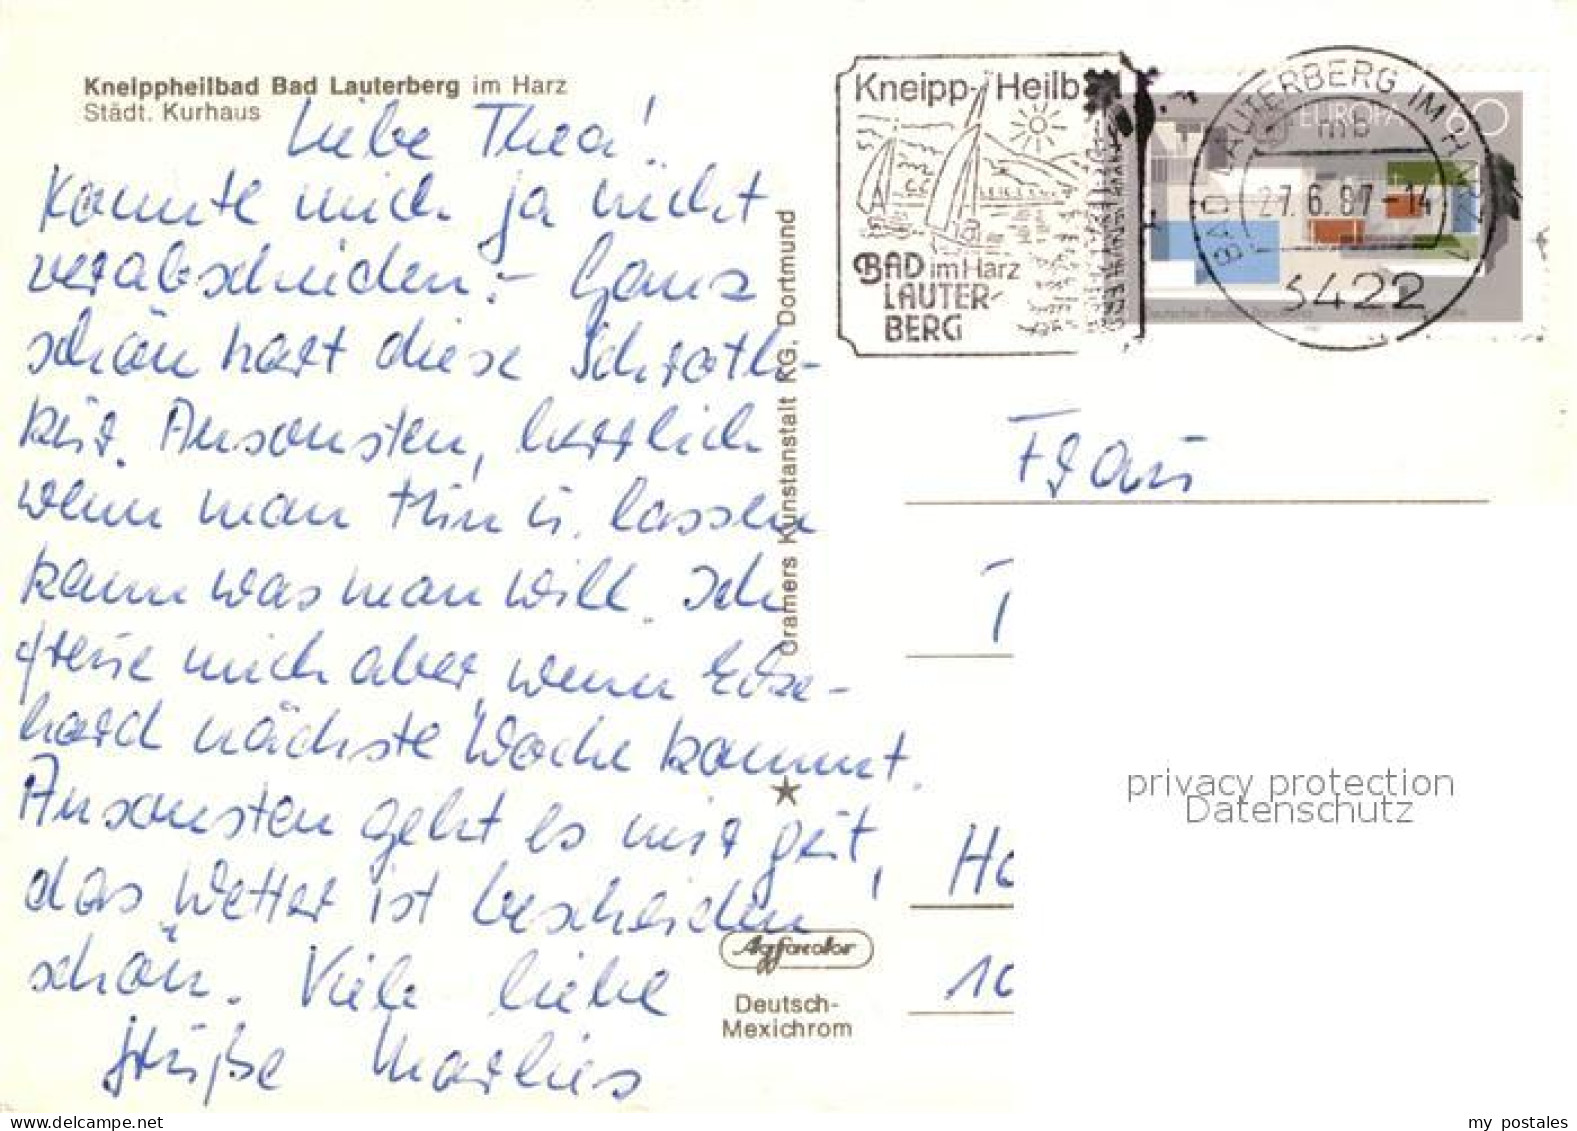 Kneippheilbad Bad Lauterberg im Harz
Städt. Kurhaus
Liebe Thea!
Konnte mich ja nicht
verabschieden. - Ganz
schön hart diese Schroth-
kur. Ansonsten, herrlich
wenn man tun u. lassen
kann was man will. Ich
freue mich aber, wenn Ecke-
hard nächste Woche kommt.
Ansonsten geht es mir gut,
das Wetter ist bescheiden
schön. Viele liebe
Grüße Marlies
Cramers Kunstanstalt KG, Dortmund
Agfacolor
Deutsch-
Mexichrom
Kneipp-Heilb
BAD im Harz
LAUTER-
BERG
BAD LAUTERBERG IM HARZ 1
mb
27.6.87-14
3422
EUROPA 60
Frau
T
Ha
10
privacy protection
Datenschutz
my postales